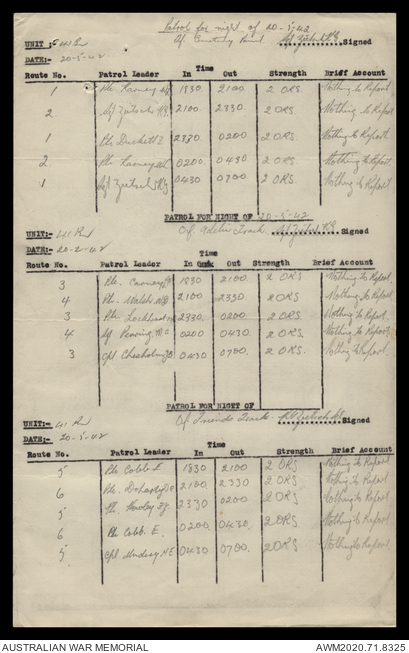 Patrol for night of 20-5-42
UNIT :- Signed
DATE:- 20-5-42
Time
Route No. Patrol Leader In Out Strength Brief Account
1 Pte 1830 2100 2 ORS Nothing to Report
2 Sgt 2100 2330 2 ORS. Nothing to Report
1 Pte Duckett 2330 0200 2 ORS. Nothing to Report
2 Pte 0200 0430 2 ORS. Nothing to Report
1 Sgt 0430 0700 2 ORS. Nothing to Report
PATROL FOR NIGHT OF 20-5-42
UNIT:- Of Track Signed
DATE:- 20-2-42
Time
Route No. Patrol Leader In Strength Brief Account
3 Pte. 1830 2100 2 ORS Nothing to Report.
4 Pte. Walsh 2100 2330 2 ORS Nothing to Report.
3 Pte. Lockhead 2330 0200 2 ORS Nothing to Report.
4 0200 0430 2 ORS Nothing to Report.
3 Cpl 0430 0700. 2 ORS. Nothing to Report
PATROL FOR NIGHT OF
Of Track
UNIT:- Signed
DATE:- 20-5-42
Time
Route No. Patrol Leader In Out Strength Brief Account
5 Pte Cobb E 1830 2100 2 ORS Nothing to Report
6 Pte. 2100 2330 2 ORS Nothing to Report
5 Pte. 2330 0200 2 ORS Nothing to Report
6 Pte Cobb. E. 0200 0430. 2 ORS Nothing to Report
5 Cpl 0430 0700. 2 ORS. Nothing to Report
AUSTRALIAN WAR MEMORIAL AWM2020.71.8325